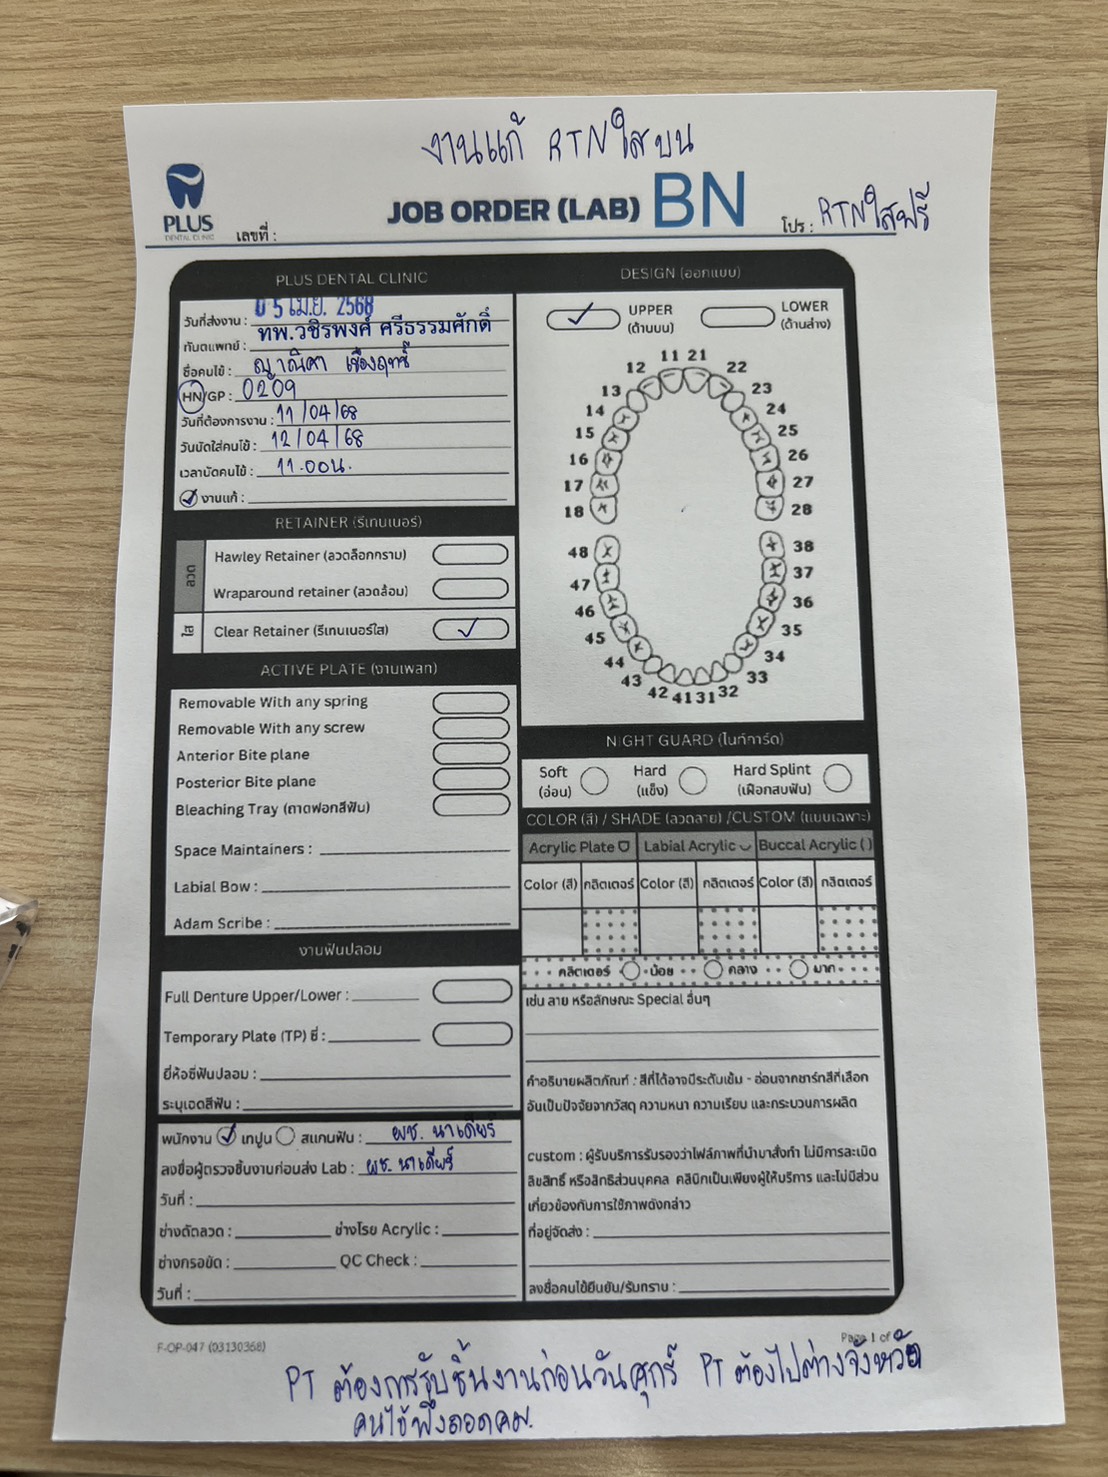 งานแก้ RTN ใส บน
PLUS
DENTAL CLINIC
เลขที่ :
JOB ORDER (LAB) BN
โปร : RTN ใส ฟรี
PLUS DENTAL CLINIC
วันที่ส่งงาน : 0 5 เม.ย. 2568
ทันตแพทย์ : ทพ.วชิรพงศ์ ศรีธรรมศักดิ์
ชื่อคนไข้ : ญาณิศา เชืองฤทธิ์
HN/GP : 0209
วันที่ต้องการงาน : 11/04/68
วันนัดใส่คนไข้ : 12/04/68
เวลานัดคนไข้ : 11.00น.
งานแก้ :
RETAINER (รีเทนเนอร์)
ลวด
Hawley Retainer (ลวดล็อกกราม)
Wraparound retainer (ลวดล้อม)
ใส
Clear Retainer (รีเทนเนอร์ใส)
ACTIVE PLATE (งานเพลท)
Removable With any spring
Removable With any screw
Anterior Bite plane
Posterior Bite plane
Bleaching Tray (ถาดฟอกสีฟัน)
Space Maintainers :
Labial Bow :
Adam Scribe :
งานฟันปลอม
Full Denture Upper/Lower :
Temporary Plate (TP) ซี่ :
ยี่ห้อซี่ฟันปลอม :
ระบุเฉดสีฟัน :
พนักงาน เทปูน สแกนฟัน : ผช. นาเดียร์
ลงชื่อผู้ตรวจชิ้นงานก่อนส่ง Lab : ผช. นาเดียร์
วันที่ :
ช่างดัดลวด : ช่างโรย Acrylic :
ช่างกรอขัด : QC Check :
วันที่ :
DESIGN (ออกแบบ)
UPPER (ด้านบน)
LOWER (ด้านล่าง)
11 21
12 22
13 23
14 24
15 25
16 26
17 27
18 28
48 38
47 37
46 36
45 35
44 34
43 33
42 41 31 32
NIGHT GUARD (ไนท์การ์ด)
Soft (อ่อน)
Hard (แข็ง)
Hard Splint (เฝือกสบฟัน)
COLOR (สี) / SHADE (ลวดลาย) /CUSTOM (แบบเฉพาะ)
Acrylic Plate Labial Acrylic Buccal Acrylic ( )
Color (สี) กลิตเตอร์ Color (สี) กลิตเตอร์ Color (สี) กลิตเตอร์
กลิตเตอร์ น้อย กลาง มาก
เช่น ลาย หรือลักษณะ Special อื่นๆ
คำอธิบายผลิตภัณฑ์ : สีที่ได้อาจมีระดับเข้ม - อ่อนจากชาร์ทสีที่เลือก
อันเป็นปัจจัยจากวัสดุ ความหนา ความเรียบ และกระบวนการผลิต
custom : ผู้รับบริการรับรองว่าไฟล์ภาพที่นำมาสั่งทำ ไม่มีการละเมิด
ลิขสิทธิ์ หรือสิทธิส่วนบุคคล คลินิกเป็นเพียงผู้ให้บริการ และไม่มีส่วน
เกี่ยวข้องกับการใช้ภาพดังกล่าว
ที่อยู่จัดส่ง :
ลงชื่อคนไข้ยืนยัน/รับทราบ :
F-OP-047 (03130368)
Page 1 of
PT ต้องการรับชิ้นงานก่อนวันศุกร์ PT ต้องไปต่างจังหวัด
คนไข้พึ่งถอดคม.